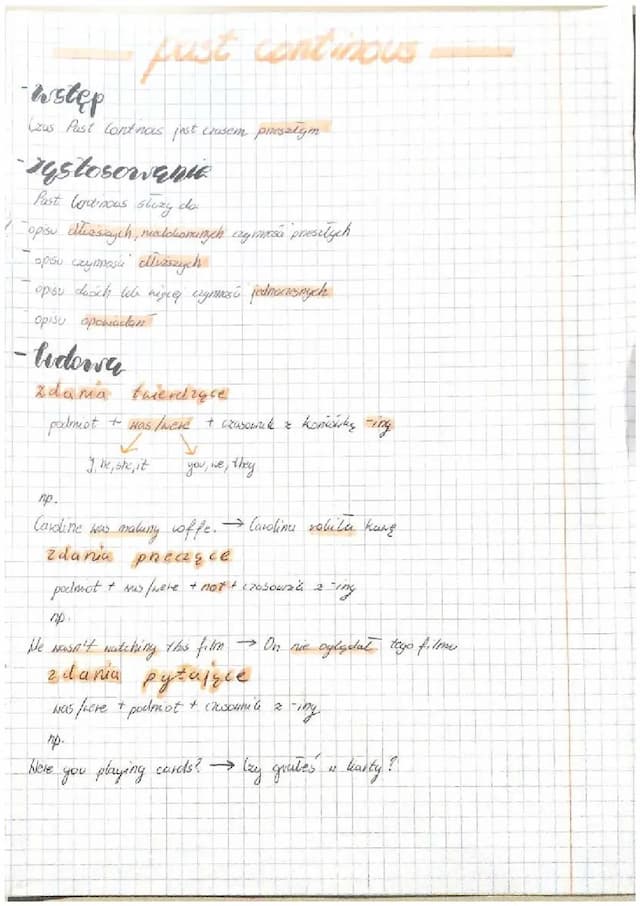 past continous
- wstęp
Czas Past Continous jest czasem przeszłym
- zastosowanie
Past Continous służy do:
- opisu dłuższych, niedokonanych czynności przeszłych
- opisu czynności dłuższych
- opisu dwóch lub więcej czynności jednoczesnych
- opisu opowiadań
- budowa
zdania twierdzące
podmiot + was/were + czasownik z końcówką -ing
I, he, she, it you, we, they
np.
Caroline was making coffe. → Carolina robiła kawę
zdania przeczące
podmiot + was/were + not + czasownik z -ing
np.
He wasn't watching this film → On nie oglądał tego filmu
zdania pytające
was/were + podmiot + czasownik z -ing
np.
Were you playing cards? → Czy grałeś w karty?